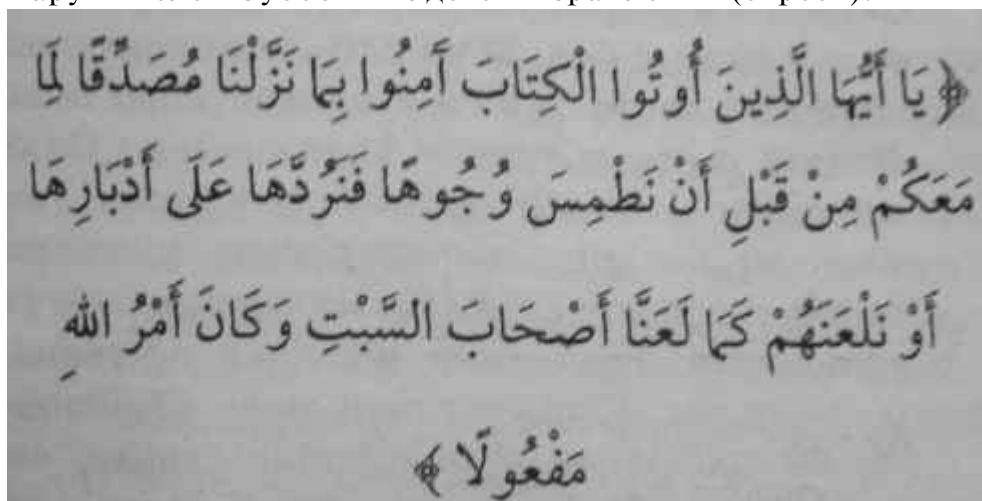 ﴿ يَا أَيُّهَا الَّذِينَ أُوتُوا الْكِتَابَ آَمِنُوا بِمَا نَزَّلْنَا مُصَدِّقًا لِمَا
مَعَكُمْ مِنْ قَبْلِ أَنْ نَطْمِسَ وُجُوهًا فَنَرُدَّهَا عَلَى أَدْبَارِهَا
أَوْ نَلْعَنَهُمْ كَمَا لَعَنَّا أَصْحَابَ السَّبْتِ وَكَانَ أَمْرُ اللهِ
مَفْعُولًا ﴾